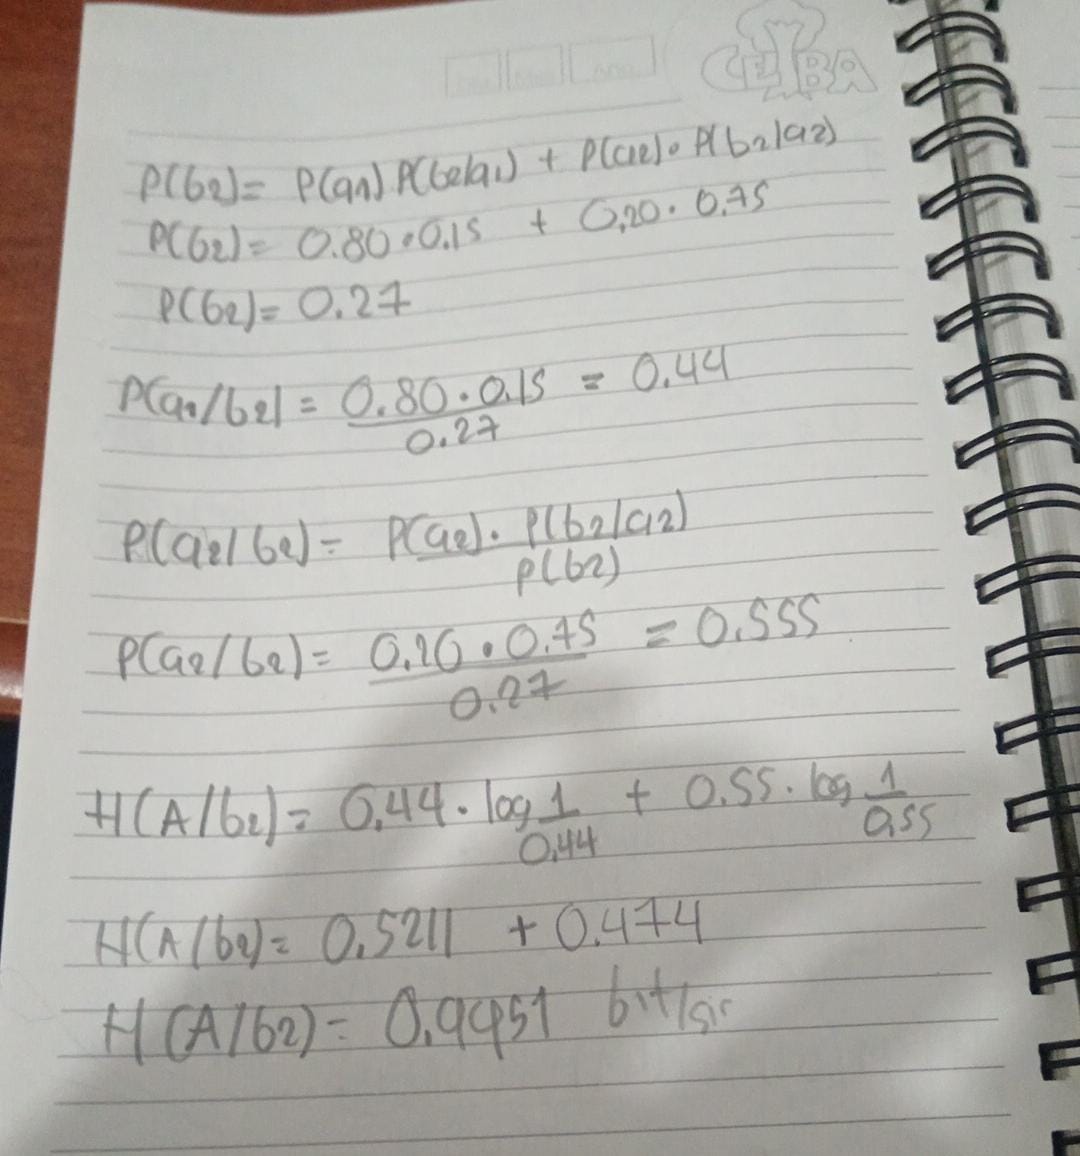 CEIBA
P(b2)= P(a1) P(b2/a1) + P(a2)• P(b2/a2)
P(b2)= 0.80•0.15 + 0,20 • 0,75
P(b2)= 0.27
P(a1/b2)= 0.80•0.15 = 0.44
0.27
P(a2/b2)= P(a2)• P(b2/a2)
P(b2)
P(a2/b2)= 0.20•0.75 = 0.555
0.27
H(A/b2)= 0,44•log 1 + 0.55•log 1
0,44 0,55
H(A/b2)= 0,5211 + 0.474
H(A/b2)= 0.9951 bit/